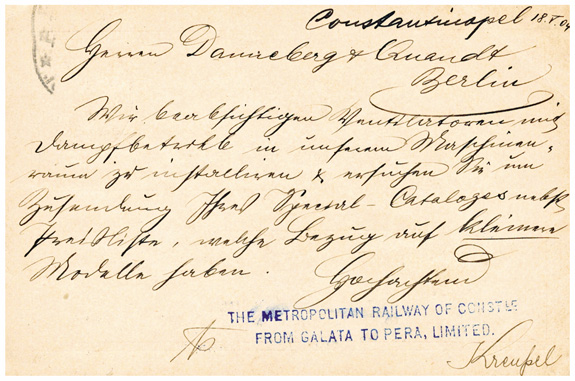 Constantinopel 18.V.04
Herren Danneberg & Quandt
Berlin
Wir beabsichtigen Ventilatoren mit
Dampfbetrieb in unserem Maschinen-
raum zu installiren & ersuchen Sie um
Zusendung Ihres Special-Cataloges nebst
Preisliste, welche Bezug auf kleinere
Modelle haben.
Hochachtend
THE METROPOLITAN RAILWAY OF CONST'LE
FROM GALATA TO PERA, LIMITED.